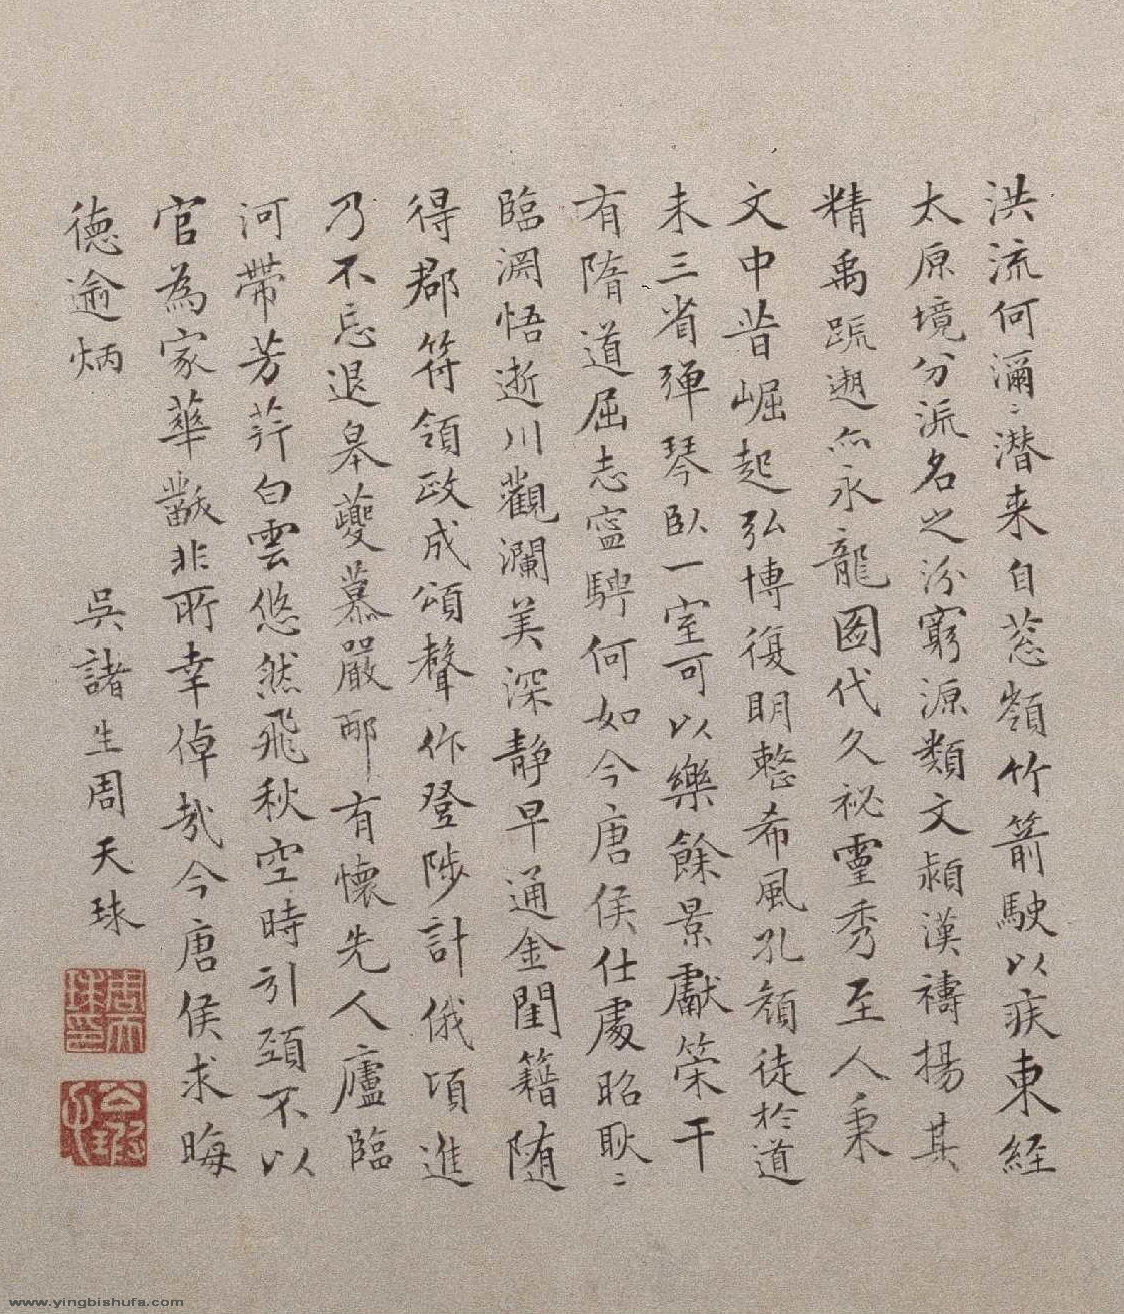 洪流何瀰〻潜来自葱嶺竹箭駛以疾東経
太原境分派名之汾窮源類文潁漢禱揚其
精禹跡遡亦永龍圖代久祕靈秀至人秉
文中昔崛起弘博復明整希風孔顏徒於道
未三省弹琴臥一室可以樂餘景獻策干
有隋道屈志寧騁何如今唐侯仕處昭耿〻
臨淵悟逝川觀瀾美深靜早通金閨籍随
得郡符領政成頌聲作登陟計俄頃進
乃不忘退皋夔慕嚴邴有懷先人廬臨
河帶芳荇白雲悠然飛秋空時引頸不以
官為家華黻非所幸倬哉今唐侯求晦
德逾炳
吳諸生周天球
www.yingbishufa.com